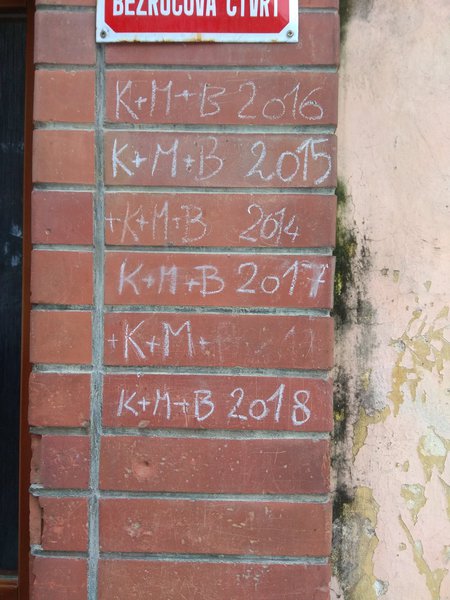 BEZRUČOVA ČTVRŤ
K+M+B 2016
K+M+B 2015
+K+M+B 2014
K+M+B 2017
+K+M+
K+M+B 2018